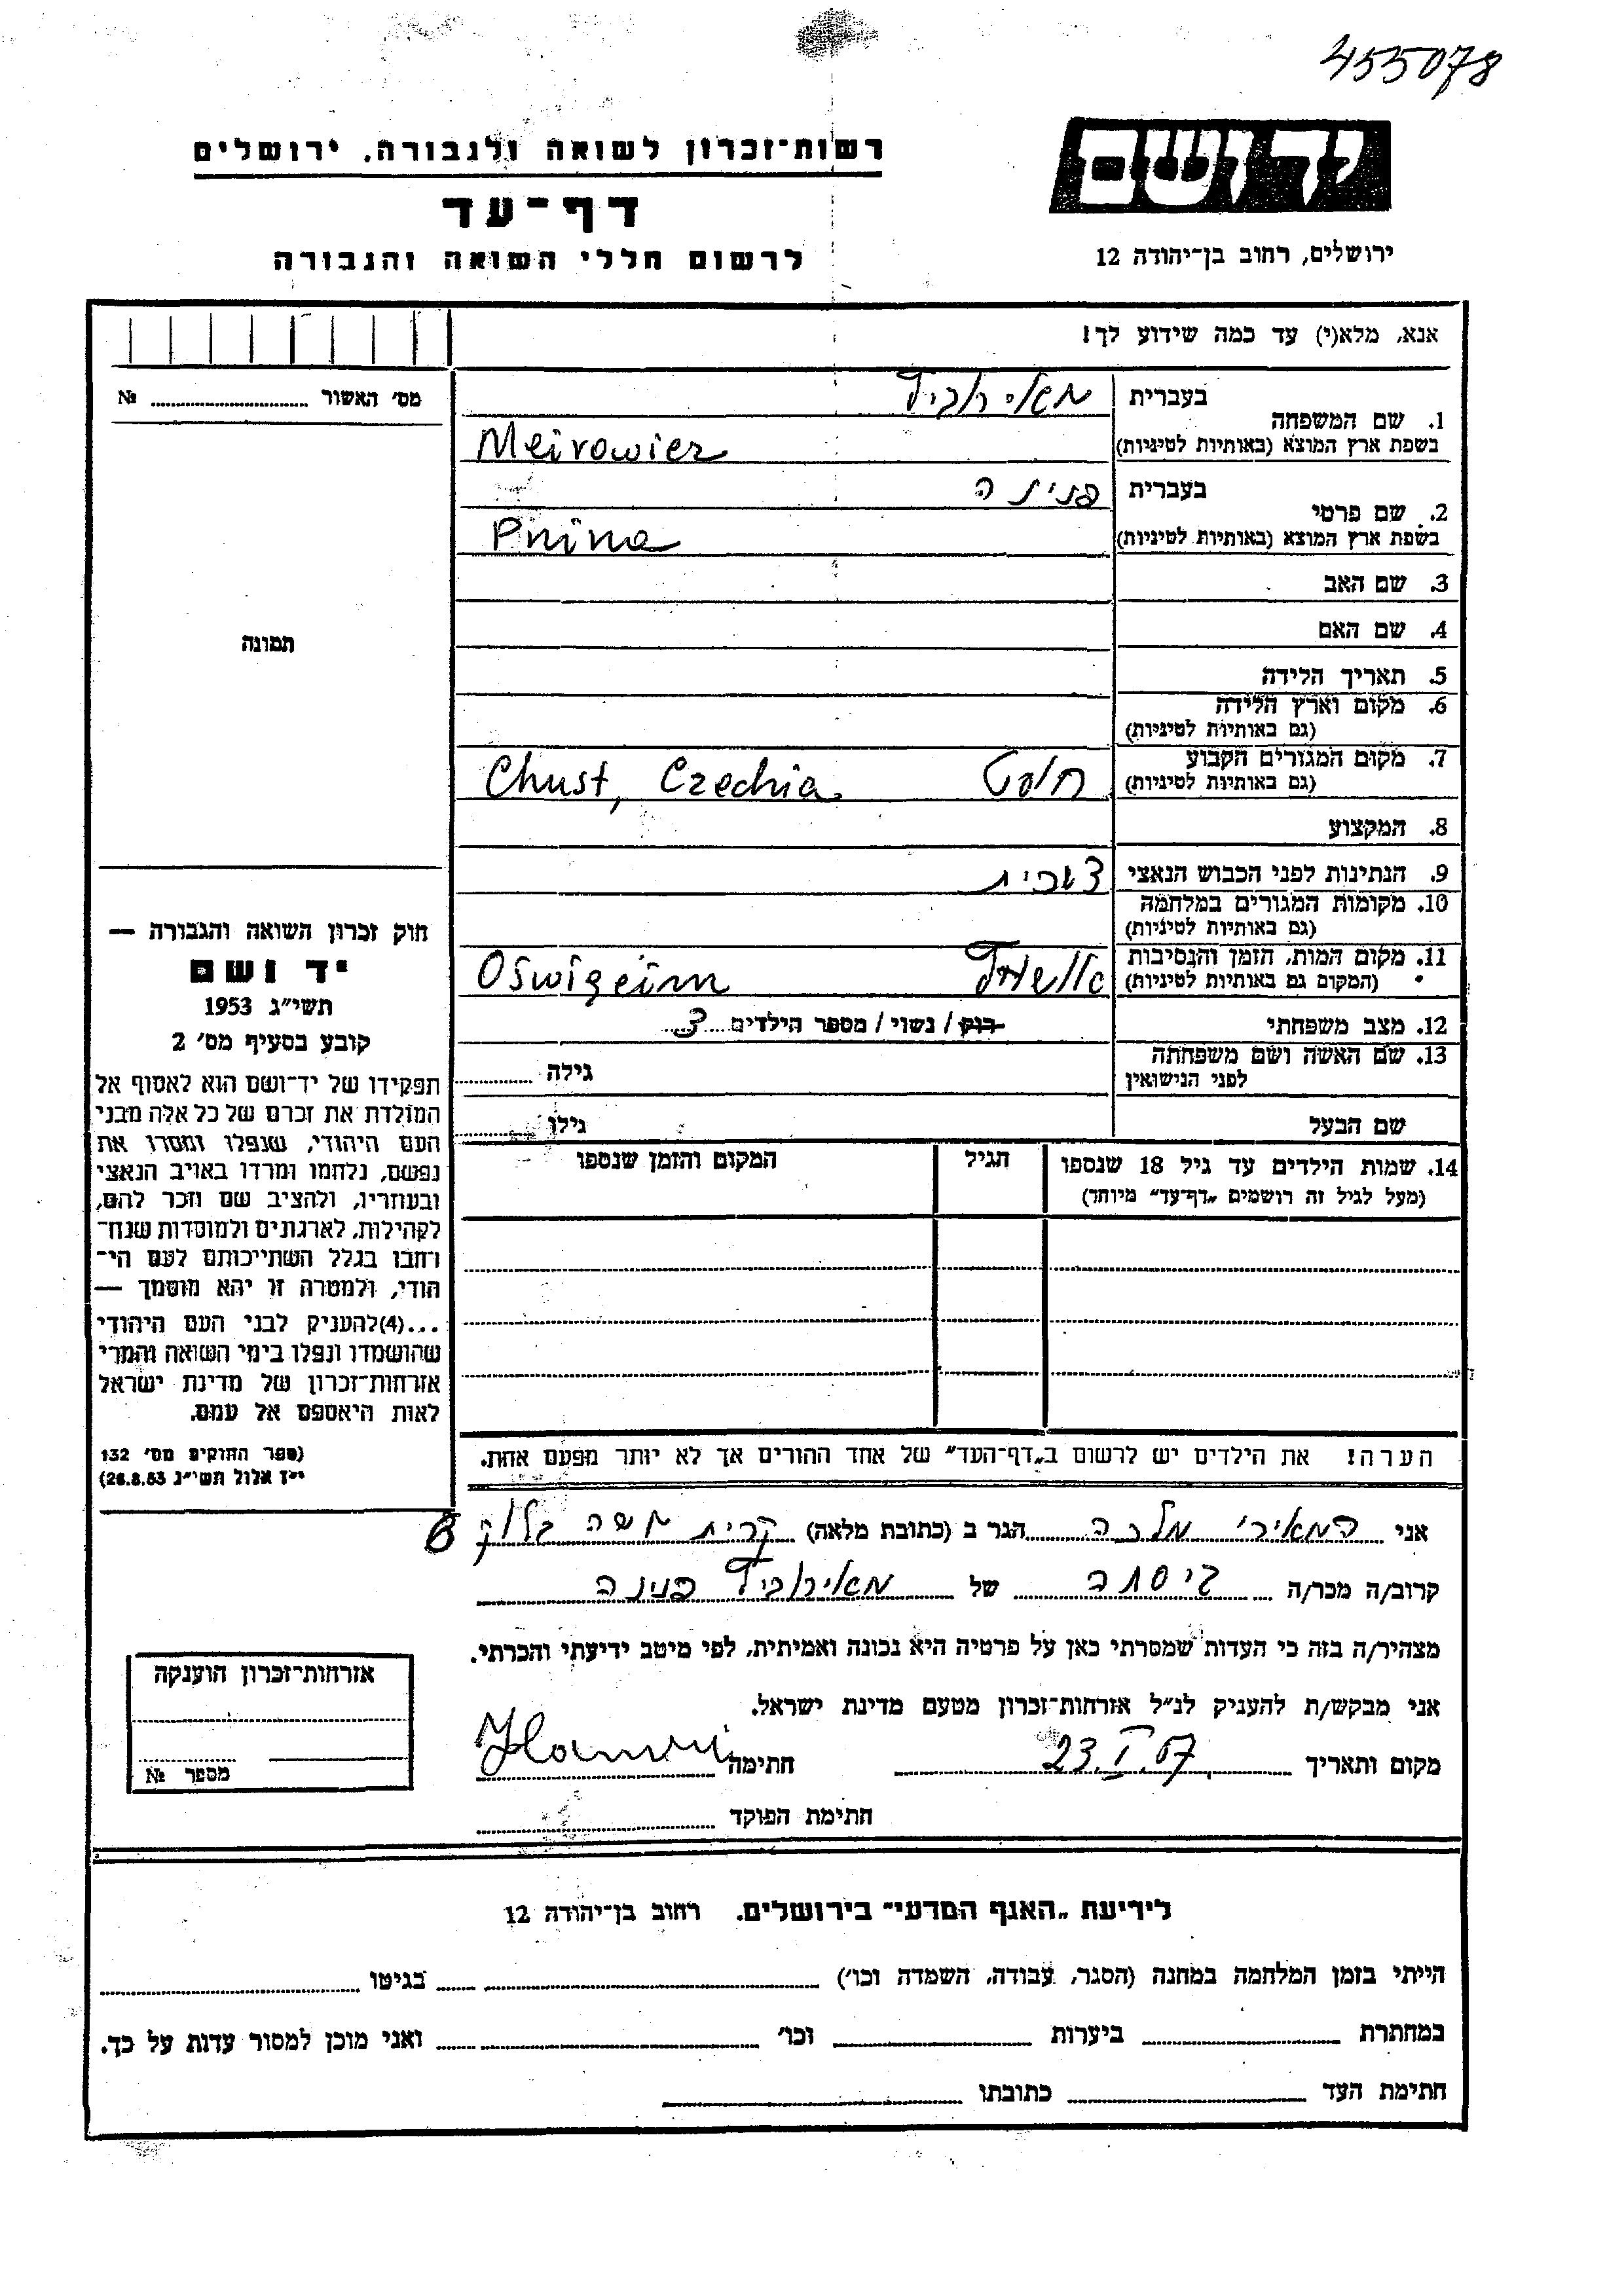 455078
יד ושם
ירושלים, רחוב בן־יהודה 12
רשות־זכרון לשואה ולגבורה, ירושלים
דף־עד
לרשום חללי השואה והגבורה
אנא, מלא(י) עד כמה שידוע לך!
מס׳ האשור № 
בעברית מאירוביץ
1. שם המשפחה
בשפת ארץ המוצא (באותיות לטיניות) Meirowicz
בעברית פנינה
2. שם פרטי
בשפת ארץ המוצא (באותיות לטיניות) Pnina
3. שם האב
4. שם האם
תמונה
5. תאריך הלידה
6. מקום וארץ הלידה
(גם באותיות לטיניות)
7. מקום המגורים הקבוע
(גם באותיות לטיניות) חוסט Chust, Czechia
8. המקצוע
9. הנתינות לפני הכבוש הנאצי צ׳כית
10. מקומות המגורים במלחמה
(גם באותיות לטיניות)
11. מקום המות, הזמן והנסיבות
(המקום גם באותיות לטיניות) אושוויץ Oświęcim
12. מצב משפחתי רווק / נשוי / מספר הילדים 3
13. שם האשה ושם משפחתה
לפני הנישואין גילה
שם הבעל גילו
14. שמות הילדים עד גיל 18 שנספו הגיל המקום והזמן שנספו
(מעל לגיל זה רושמים „דף־עד” מיוחד)
חוק זכרון השואה והגבורה —
יד ושם
תשי״ג 1953
קובע בסעיף מס׳ 2
תפקידו של יד־ושם הוא לאסוף אל
המולדת את זכרם של כל אלה מבני
העם היהודי, שנפלו ומסרו את
נפשם, נלחמו ומרדו באויב הנאצי
ובעוזריו, ולהציב שם וזכר להם,
לקהילות, לארגונים ולמוסדות שנח־
רחבו בגלל השתייכותם לעם הי־
הודי, ולמטרה זו יהא מוסמך —
...(4) להעניק לבני העם היהודי
שהושמדו ונפלו בימי השואה והמרי
אזרחות־זכרון של מדינת ישראל
לאות היאספם אל עמם.
(ספר החוקים מס׳ 132
י״ז אלול תשי״ג 26.8.53)
הערה! את הילדים יש לרשום ב„דף־העד” של אחד ההורים אך לא יותר מפעם אחת.
אני המאירי מלכה הגר ב (כתובת מלאה) קרית משה בלוק 8
קרוב/ה מכר/ה גיסתה של מאירוביץ פנינה
מצהיר/ה בזה כי העדות שמסרתי כאן על פרטיה היא נכונה ואמיתית, לפי מיטב ידיעתי והכרתי.
אני מבקש/ת להעניק לנ״ל אזרחות־זכרון מטעם מדינת ישראל.
מקום ותאריך 23.I.57 חתימה
חתימת הפוקד
אזרחות־זכרון הוענקה
מספר №
לידיעת „האגף המדעי” בירושלים, רחוב בן־יהודה 12
הייתי בזמן המלחמה במחנה (הסגר, עבודה, השמדה וכו׳) בגיטו
במחתרת ביערות וכו׳ ואני מוכן למסור עדות על כך.
חתימת העד כתובתו